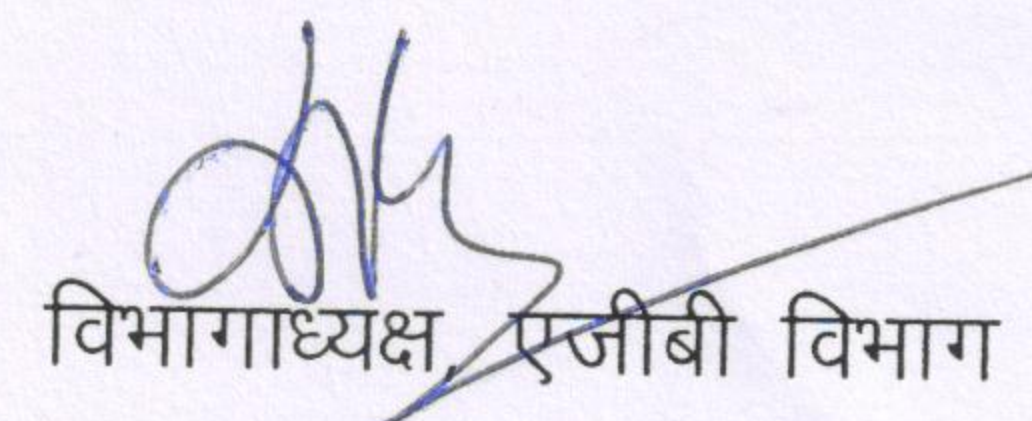 विभागाध्यक्ष, एजीबी विभाग